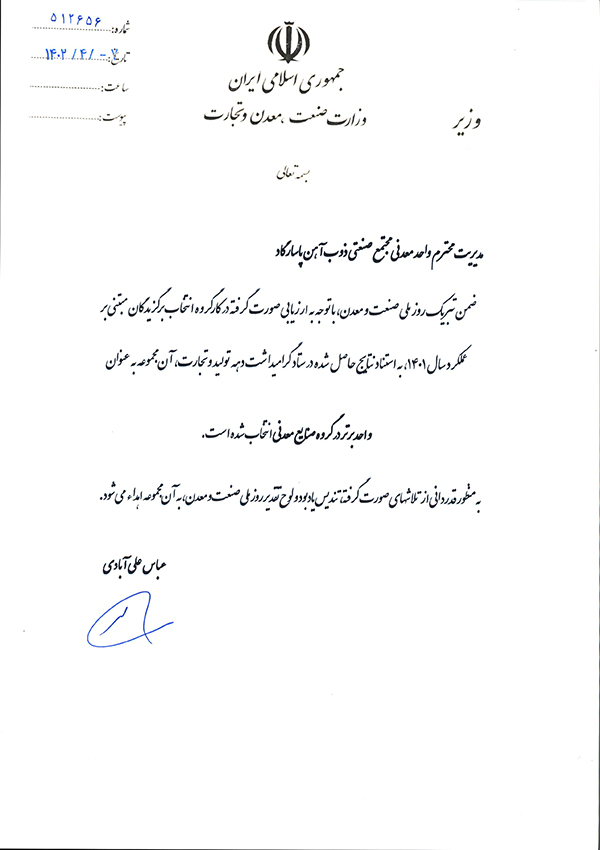 شماره: ۵۱۲۶۵۶
تاریخ: ۱۴۰۲/۴/
ساعت:
پیوست:
جمهوری اسلامی ایران
وزارت صنعت، معدن و تجارت
وزیر
بسمه تعالی
مدیریت محترم واحد معدنی مجتمع صنعتی ذوب آهن پاسارگاد
ضمن تبریک روز ملی صنعت و معدن، با توجه به ارزیابی صورت گرفته در کارگروه انتخاب برگزیدگان مبتنی بر
عملکرد سال ۱۴۰۱، به استناد نتایج حاصل شده در ستاد گرامیداشت دهه تولید و تجارت، آن مجموعه به عنوان
واحد برتر در گروه صنایع معدنی انتخاب شده است.
به منظور قدردانی از تلاشهای صورت گرفته، تندیس یادبود و لوح تقدیر روز ملی صنعت و معدن، به آن مجموعه اهداء می شود.
عباس علی آبادی